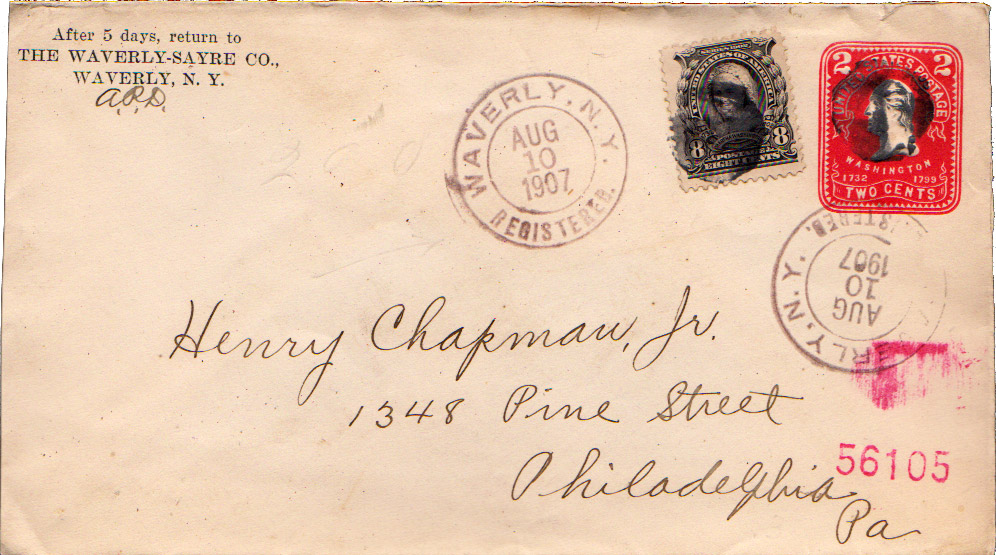 After 5 days, return to
THE WAVERLY-SAYRE CO.,
WAVERLY, N. Y.
WAVERLY, N. Y.
AUG
10
1907
REGISTERED.
SERIES 1902
UNITED STATES OF AMERICA
8 POSTAGE 8
EIGHT CENTS
2 UNITED STATES POSTAGE 2
WASHINGTON
1732 1799
TWO CENTS
AUG
10
1907
Henry Chapman, Jr.
1348 Pine Street
Philadelphia
Pa
56105